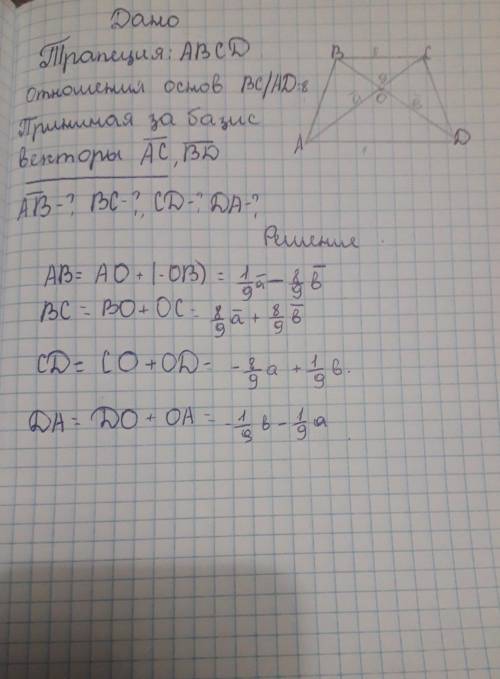 Дано
Трапеция: ABCD
отношения основ BC/AD=8
Принимая за базис
векторы AC, BD
AB-? BC-? CD-? DA-?
Решение
AB = AO + (-OB) = 1/9 a - 8/9 b
BC = BO + OC = 8/9 a + 8/9 b
CD = CO + OD = - 8/9 a + 1/9 b.
DA = DO + OA = - 1/9 b - 1/9 a
B C
O
A D